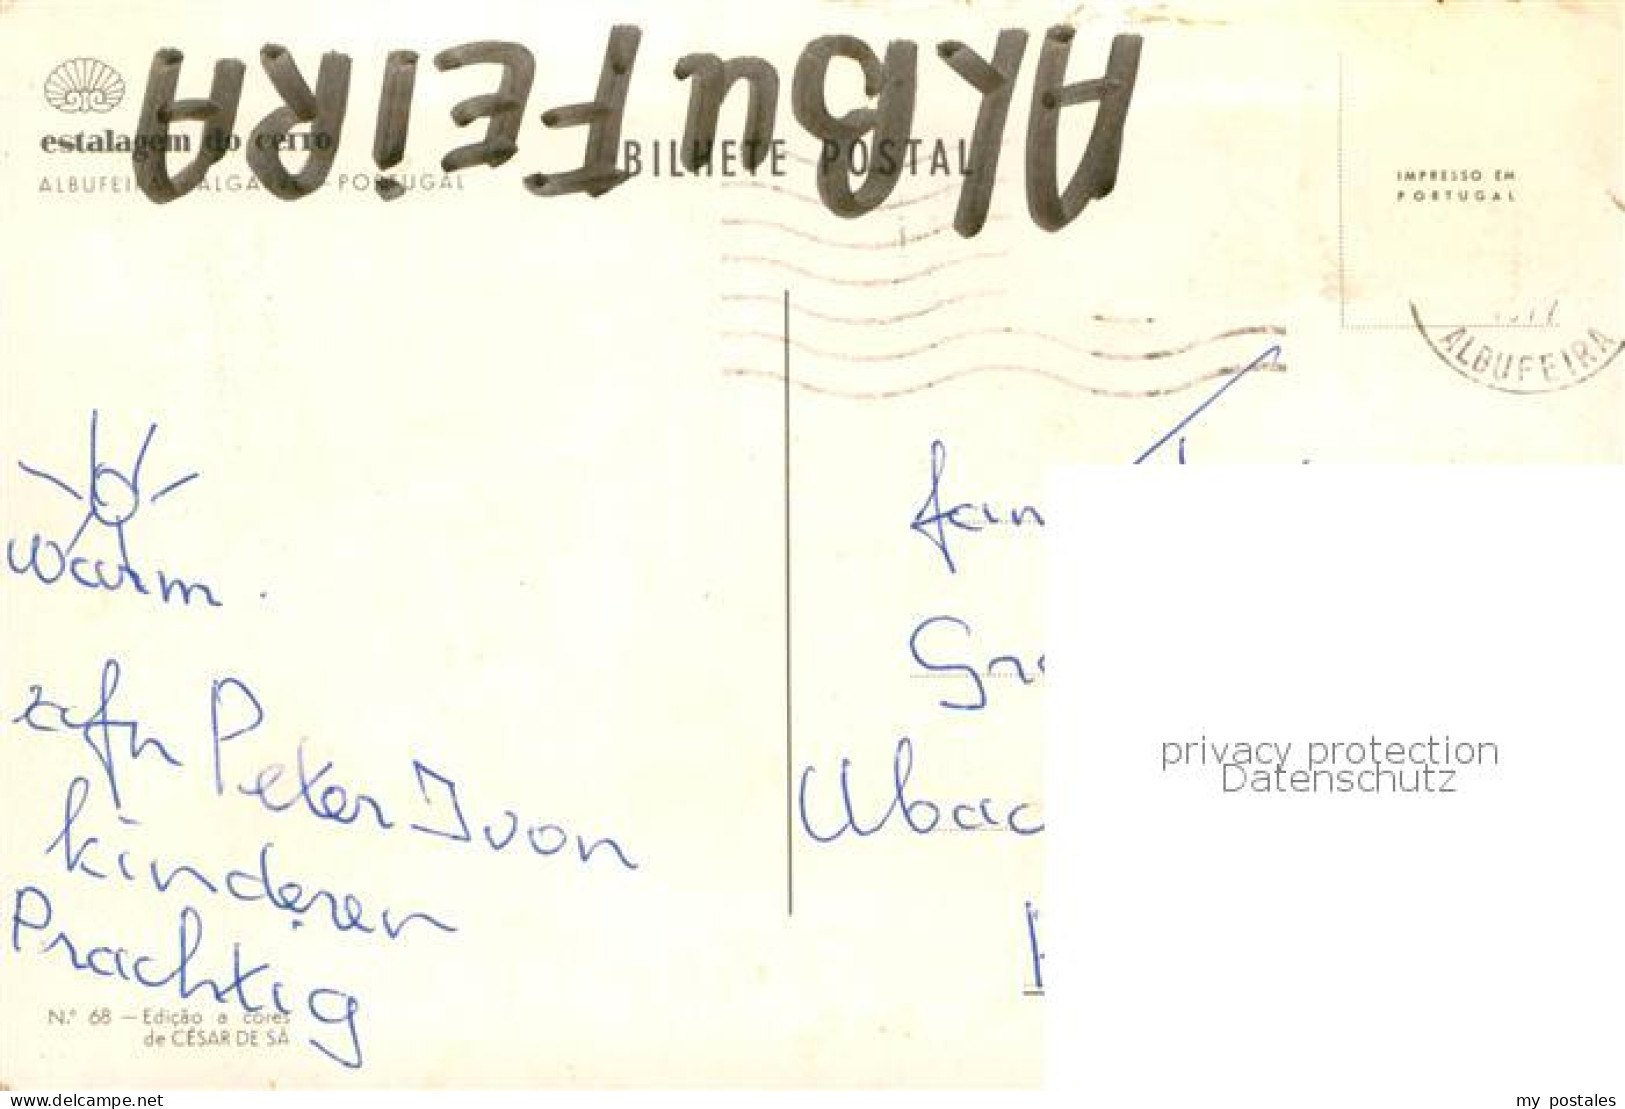 ALBUFEIRA
estalagem do cerro
ALBUFEIRA - ALGARVE - PORTUGAL
BILHETE POSTAL
IMPRESSO EM
PORTUGAL
ALBUFEIRA
Warm.
Peter Ivon
kinderen
Prachtig
N.º 68 — Edição a cores
de CÉSAR DE SÁ
fam
Gr
Ubac
privacy protection
Datenschutz
www.delcampe.net
my_postales